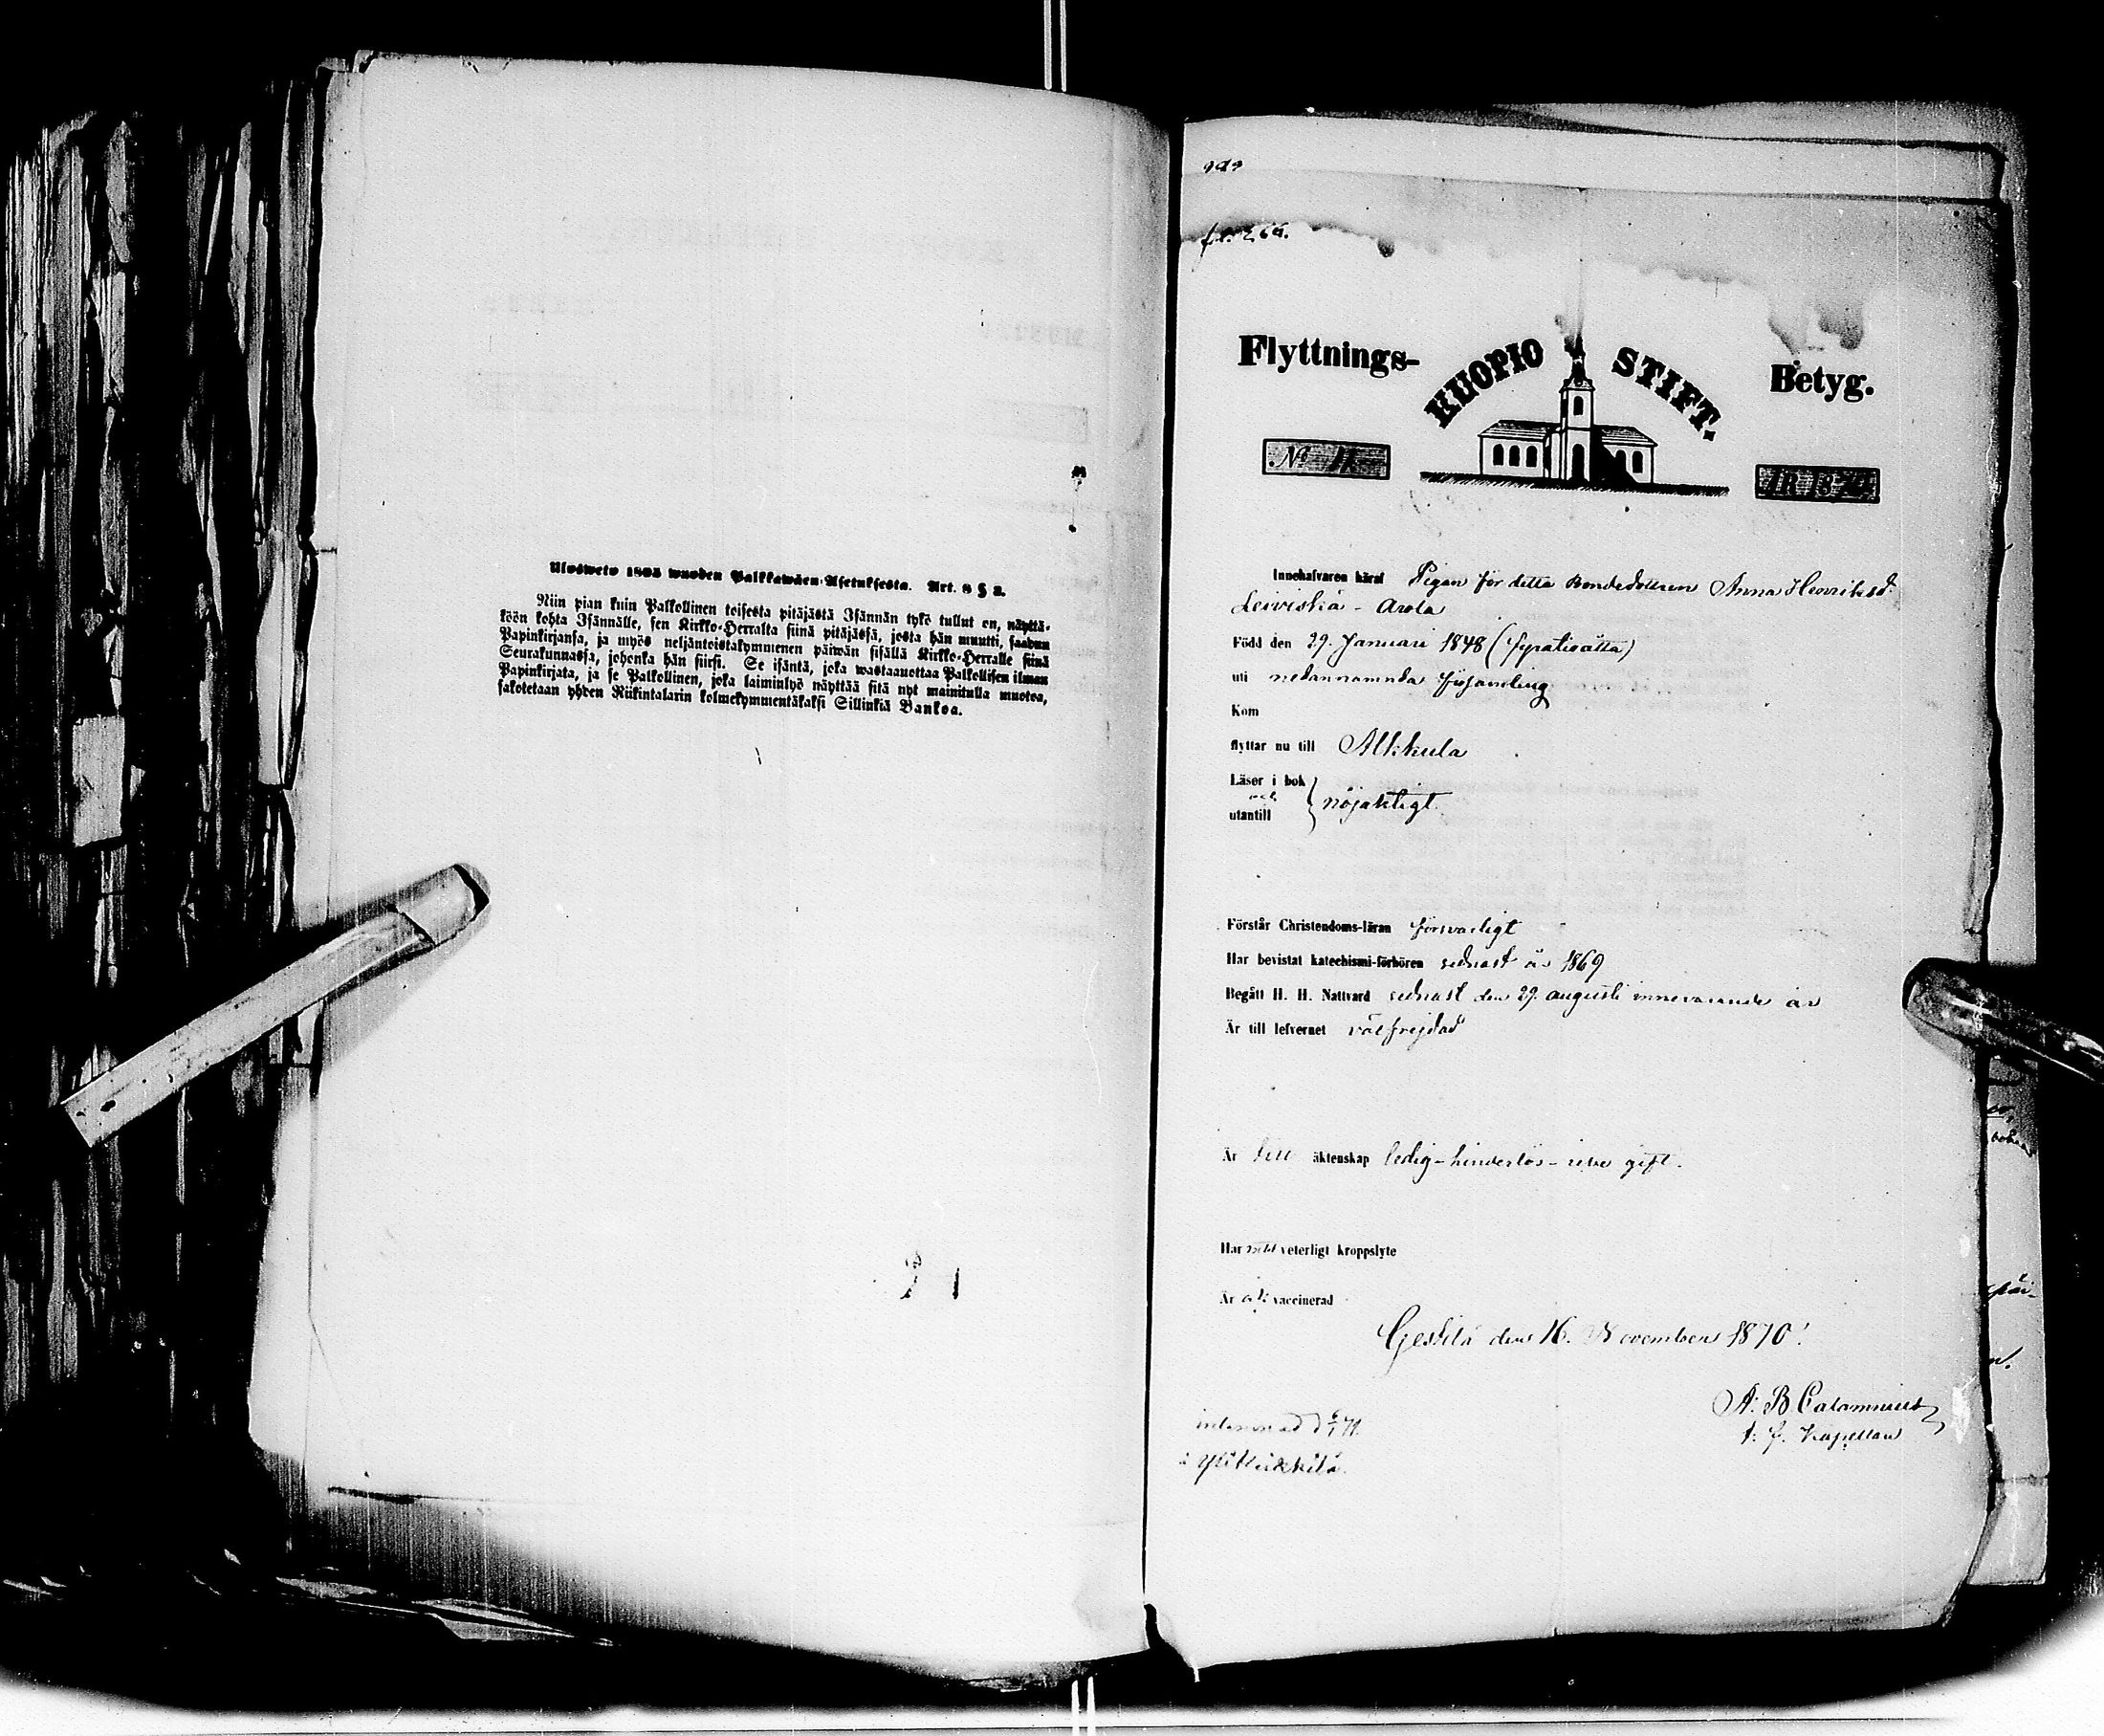 Ulosweto 1805 wuoden Palkkawäen-Asetuksesta. Art. 8 § 2.
Niin pian kuin Palkollinen toisesta pitäjästä Isännän tykö tullut on, näyttä-
köön kohta Isännälle, sen Kirkko-Herralta siinä pitäjässä, josta hän muutti, saadun
Papinkirjansa, ja myös neljäntoistakymmenen päiwän sisällä Kirkko-Herralle siinä
Seurakunnassa, johonka hän siirsi. Se isäntä, joka wastaanottaa Palkollisen ilman
Papinkirjata, ja se Palkollinen, joka laiminlyö näyttää sitä nyt mainitulla muotoa,
sakotetaan yhden Riikintalarin kolmekymmentäkaksi Sillinkiä Bankoa.
Flyttnings-
KUOPIO STIFT.
Betyg.
No
ÅR 1870
Innehafvaren häraf Pigan för detta Bondedottren Anna Henriksd:
Leiviskä - Arola
Född den 29. Januari 1848 (fyratioåtta)
uti nedannämnda församling
Kom
flyttar nu till Alkkula
Läser i bok
och
utantill
nöjaktigt.
Förstår Christendoms-läran försvarligt
Har bevistat katechismi-förhören sednast år 1869
Begått H. H. Nattvard sednast den 29. augusti innevarande år
Är till lefvernet välfrejdad
Är till äktenskap ledig - hinderlös - icke gift.
Har veterligt kroppslyte
Är ok vaccinerad
Gestilä den 16. November 1870.
A: B. Calamnius
t: f. Kapellan